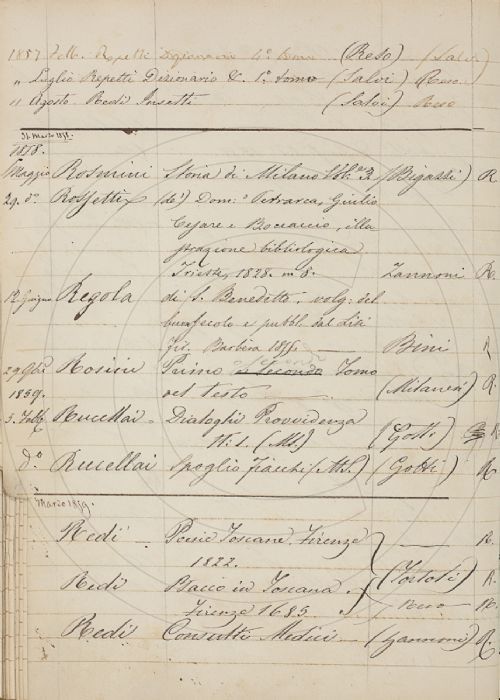 1857 Febb. Repetti Dizionario 4º tomo (Reso) (Salvi)
" Luglio Repetti Dizionario &. 1º tomo (Salvi) Reso
" Agosto Redi Insetti (Salvi) Reso
31. Marzo 1858.
1858.
Maggio Rosmini Storia di Milano (Bigazzi) R.
29. dº Rossetti (de') Dom: Petrarca, Giulio
Cesare e Boccaccio, illu
strazione bibliologica
Trieste, 1828. in 8. Zannoni R.
12. Giugno Regola di S. Benedetto, volg: del
buon secolo e pubbl. dal
Barbèra 1855. — Bini R
29 9bre Rosini Primo e secondo Tomo
1859. del testo — (Milanesi) R.
5. Febb. Rucellai. Dialoghi Provvidenza
(MS.) (Gotti) R.
dº. Rucellai Spoglio Fiacchi (MS.) (Gotti) R
Marzo 1859.
Redi — Poesie Toscane, Firenze — R.
1822.
Redi Bacco in Toscana. (Tortoli) R.
Firenze 1685. — Reso — R.
Redi Consulti Medici — (Zannoni) R.